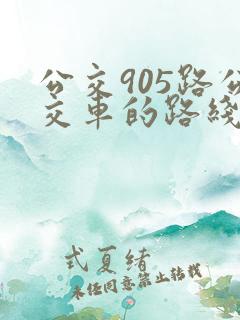 公交905路公
交车的路线
式夏绪
未经同意禁止转载